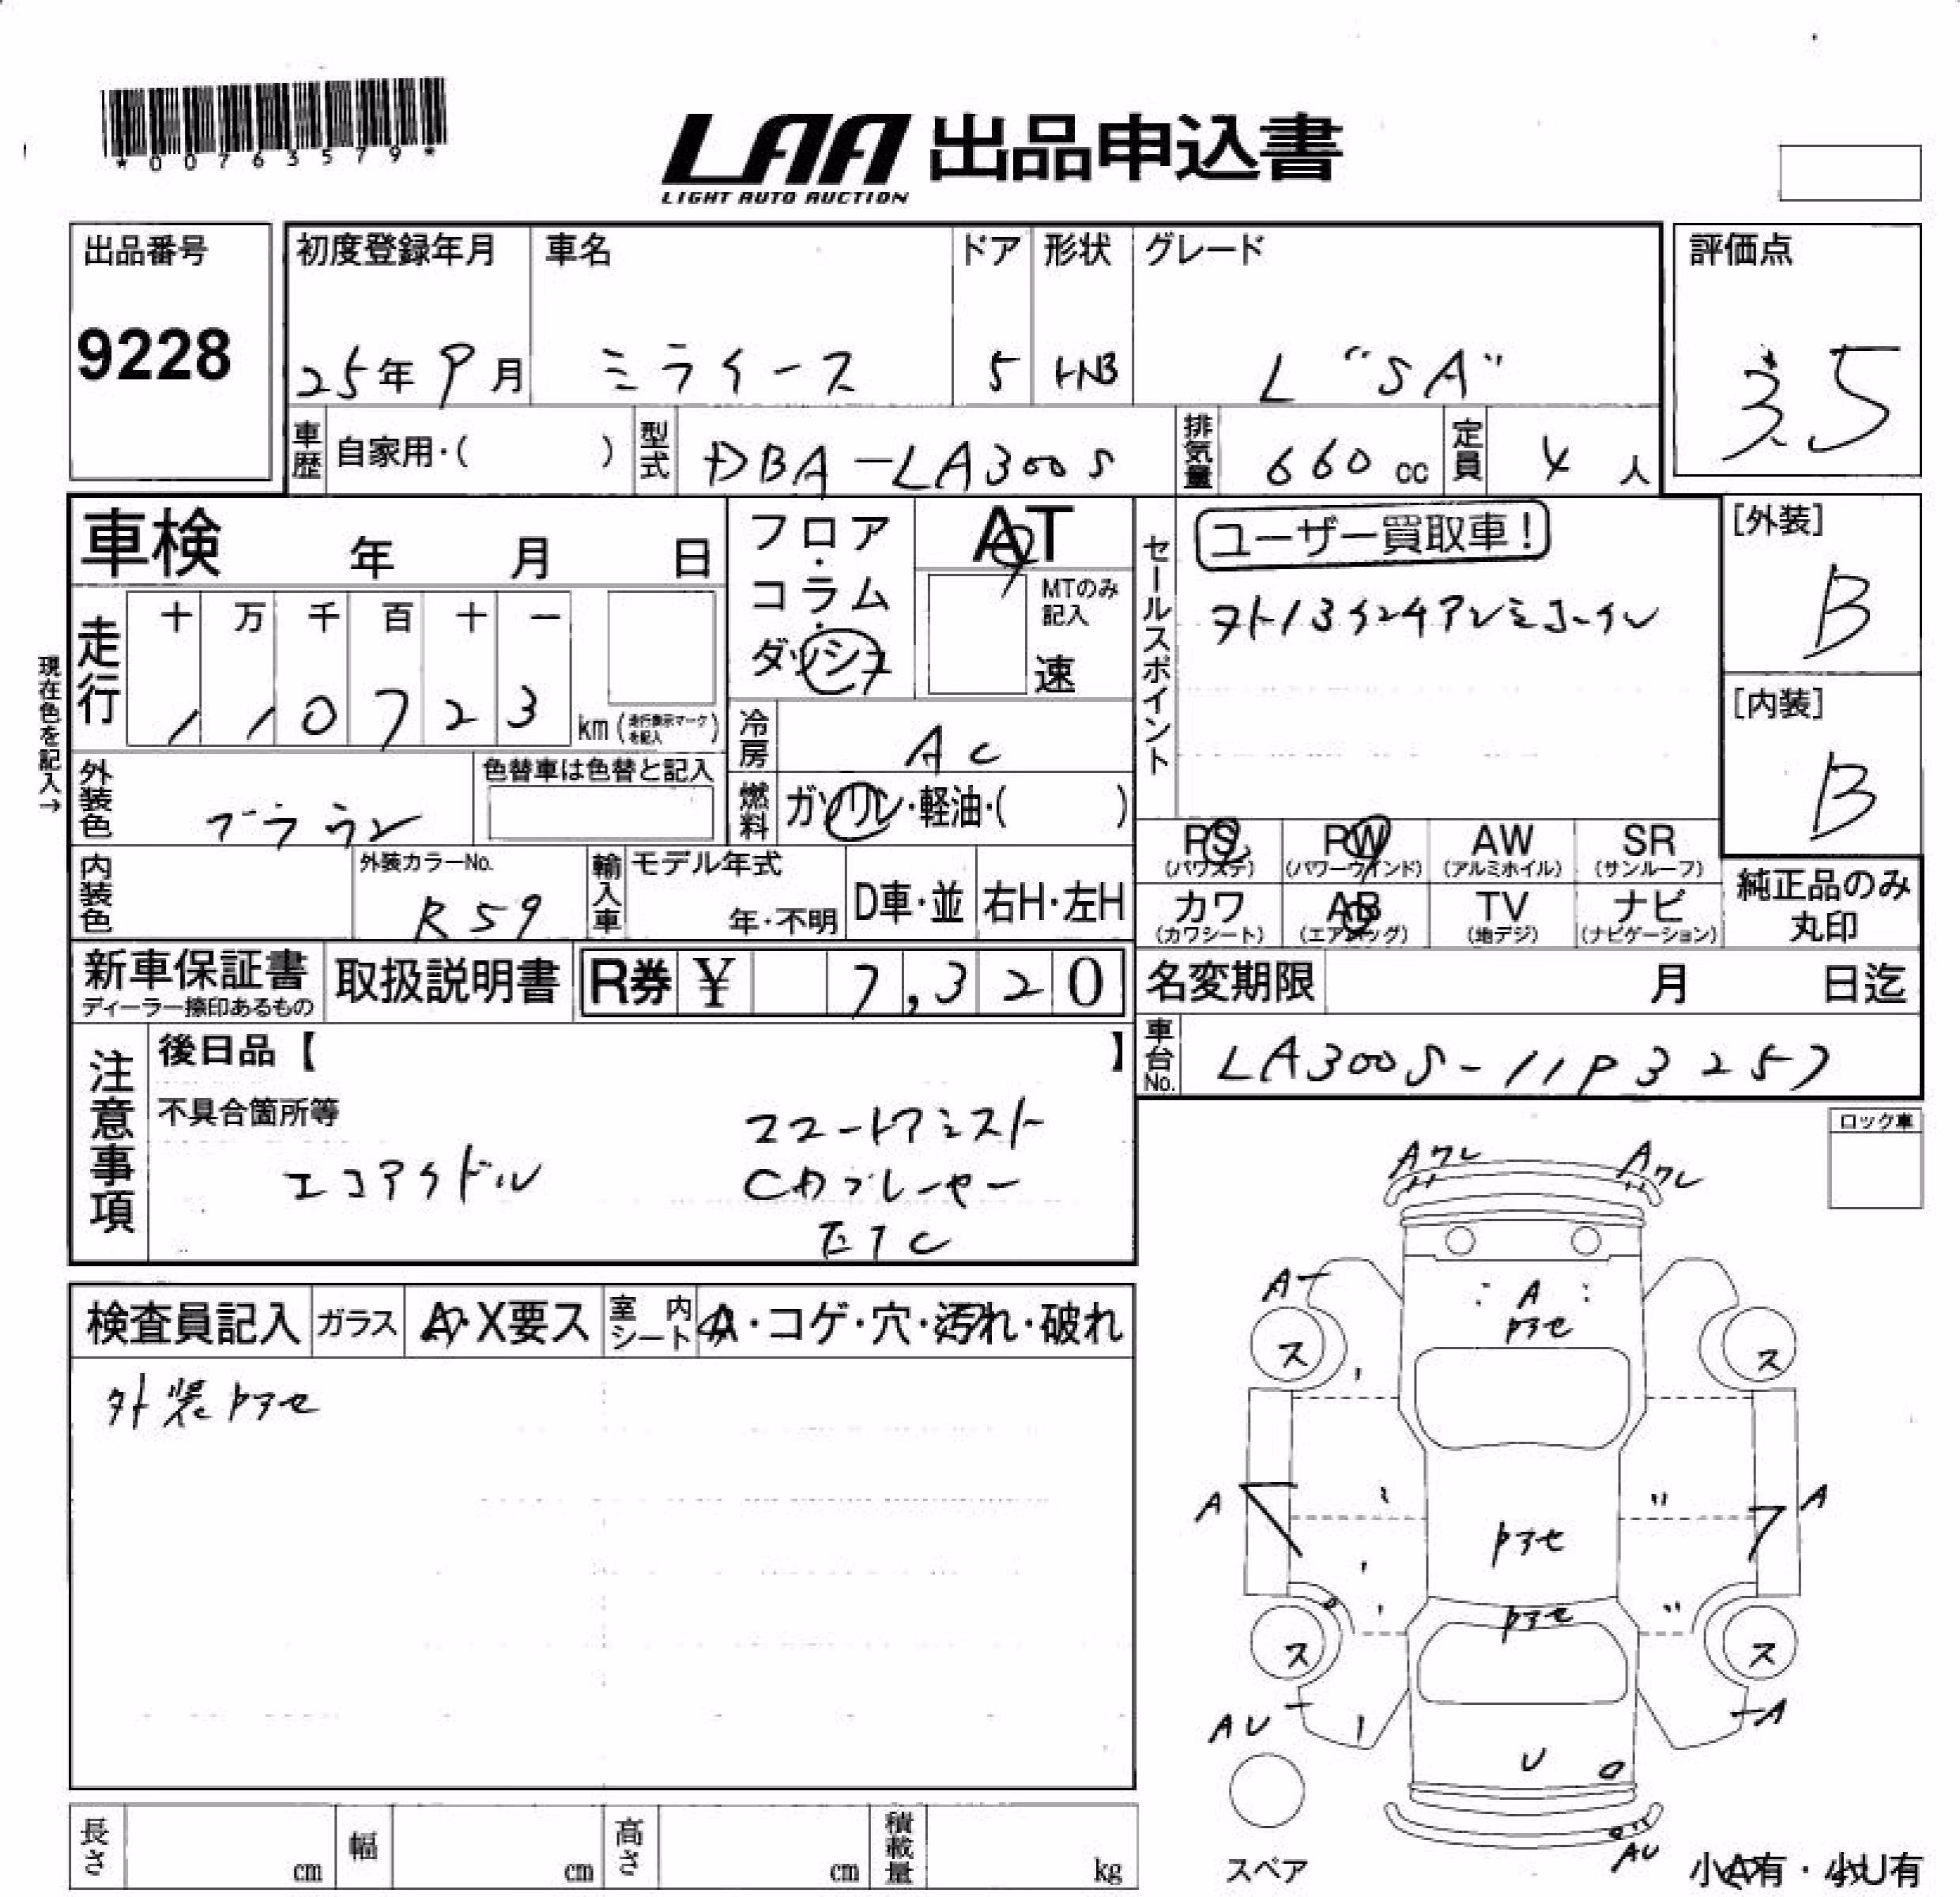 *00763579*
LAA 出品申込書
LIGHT AUTO AUCTION
出品番号
9228
初度登録年月
25年9月
車名
ミライース
ドア
5
形状
HB
グレード
L "SA"
評価点
3.5
車歴
自家用・( )
型式
DBA-LA300S
排気量
660 cc
定員
4 人
車検 年 月 日
走行
十 万 千 百 十 一
1 1 0 7 2 3 km(走行表示マークを記入)
現在色を記入→
外装色
ブラウン
色替車は色替と記入
内装色
外装カラーNo.
R59
フロア・コラム・ダッシュ
AT
MTのみ記入
速
冷房
AC
燃料
ガソリン・軽油・( )
輸入車
モデル年式
年・不明
D車・並
右H・左H
セールスポイント
ユーザー買取車!
[外装]
B
[内装]
B
PS (パワステ)
PW (パワーウインド)
AW (アルミホイル)
SR (サンルーフ)
カワ (カワシート)
AB (エアバッグ)
TV (地デジ)
ナビ (ナビゲーション)
純正品のみ丸印
新車保証書
ディーラー捺印あるもの
取扱説明書
R券 ¥ 7,320
名変期限 月 日迄
車台No.
LA300S-1193257
注意事項
後日品【 】
不具合箇所等
エコアイドル
スマートアシスト
CDプレーヤー
ETC
ロック車
検査員記入
ガラス
A・X要ス
室内シート
A・コゲ・穴・汚れ・破れ
外装トアセ
Aワレ
Aワレ
A
A
トアセ
ス
ス
A
A
トアセ
トアセ
ス
ス
AU
A
U
AU
スペア
小A有・小U有
長さ cm
幅 cm
高さ cm
積載量 kg